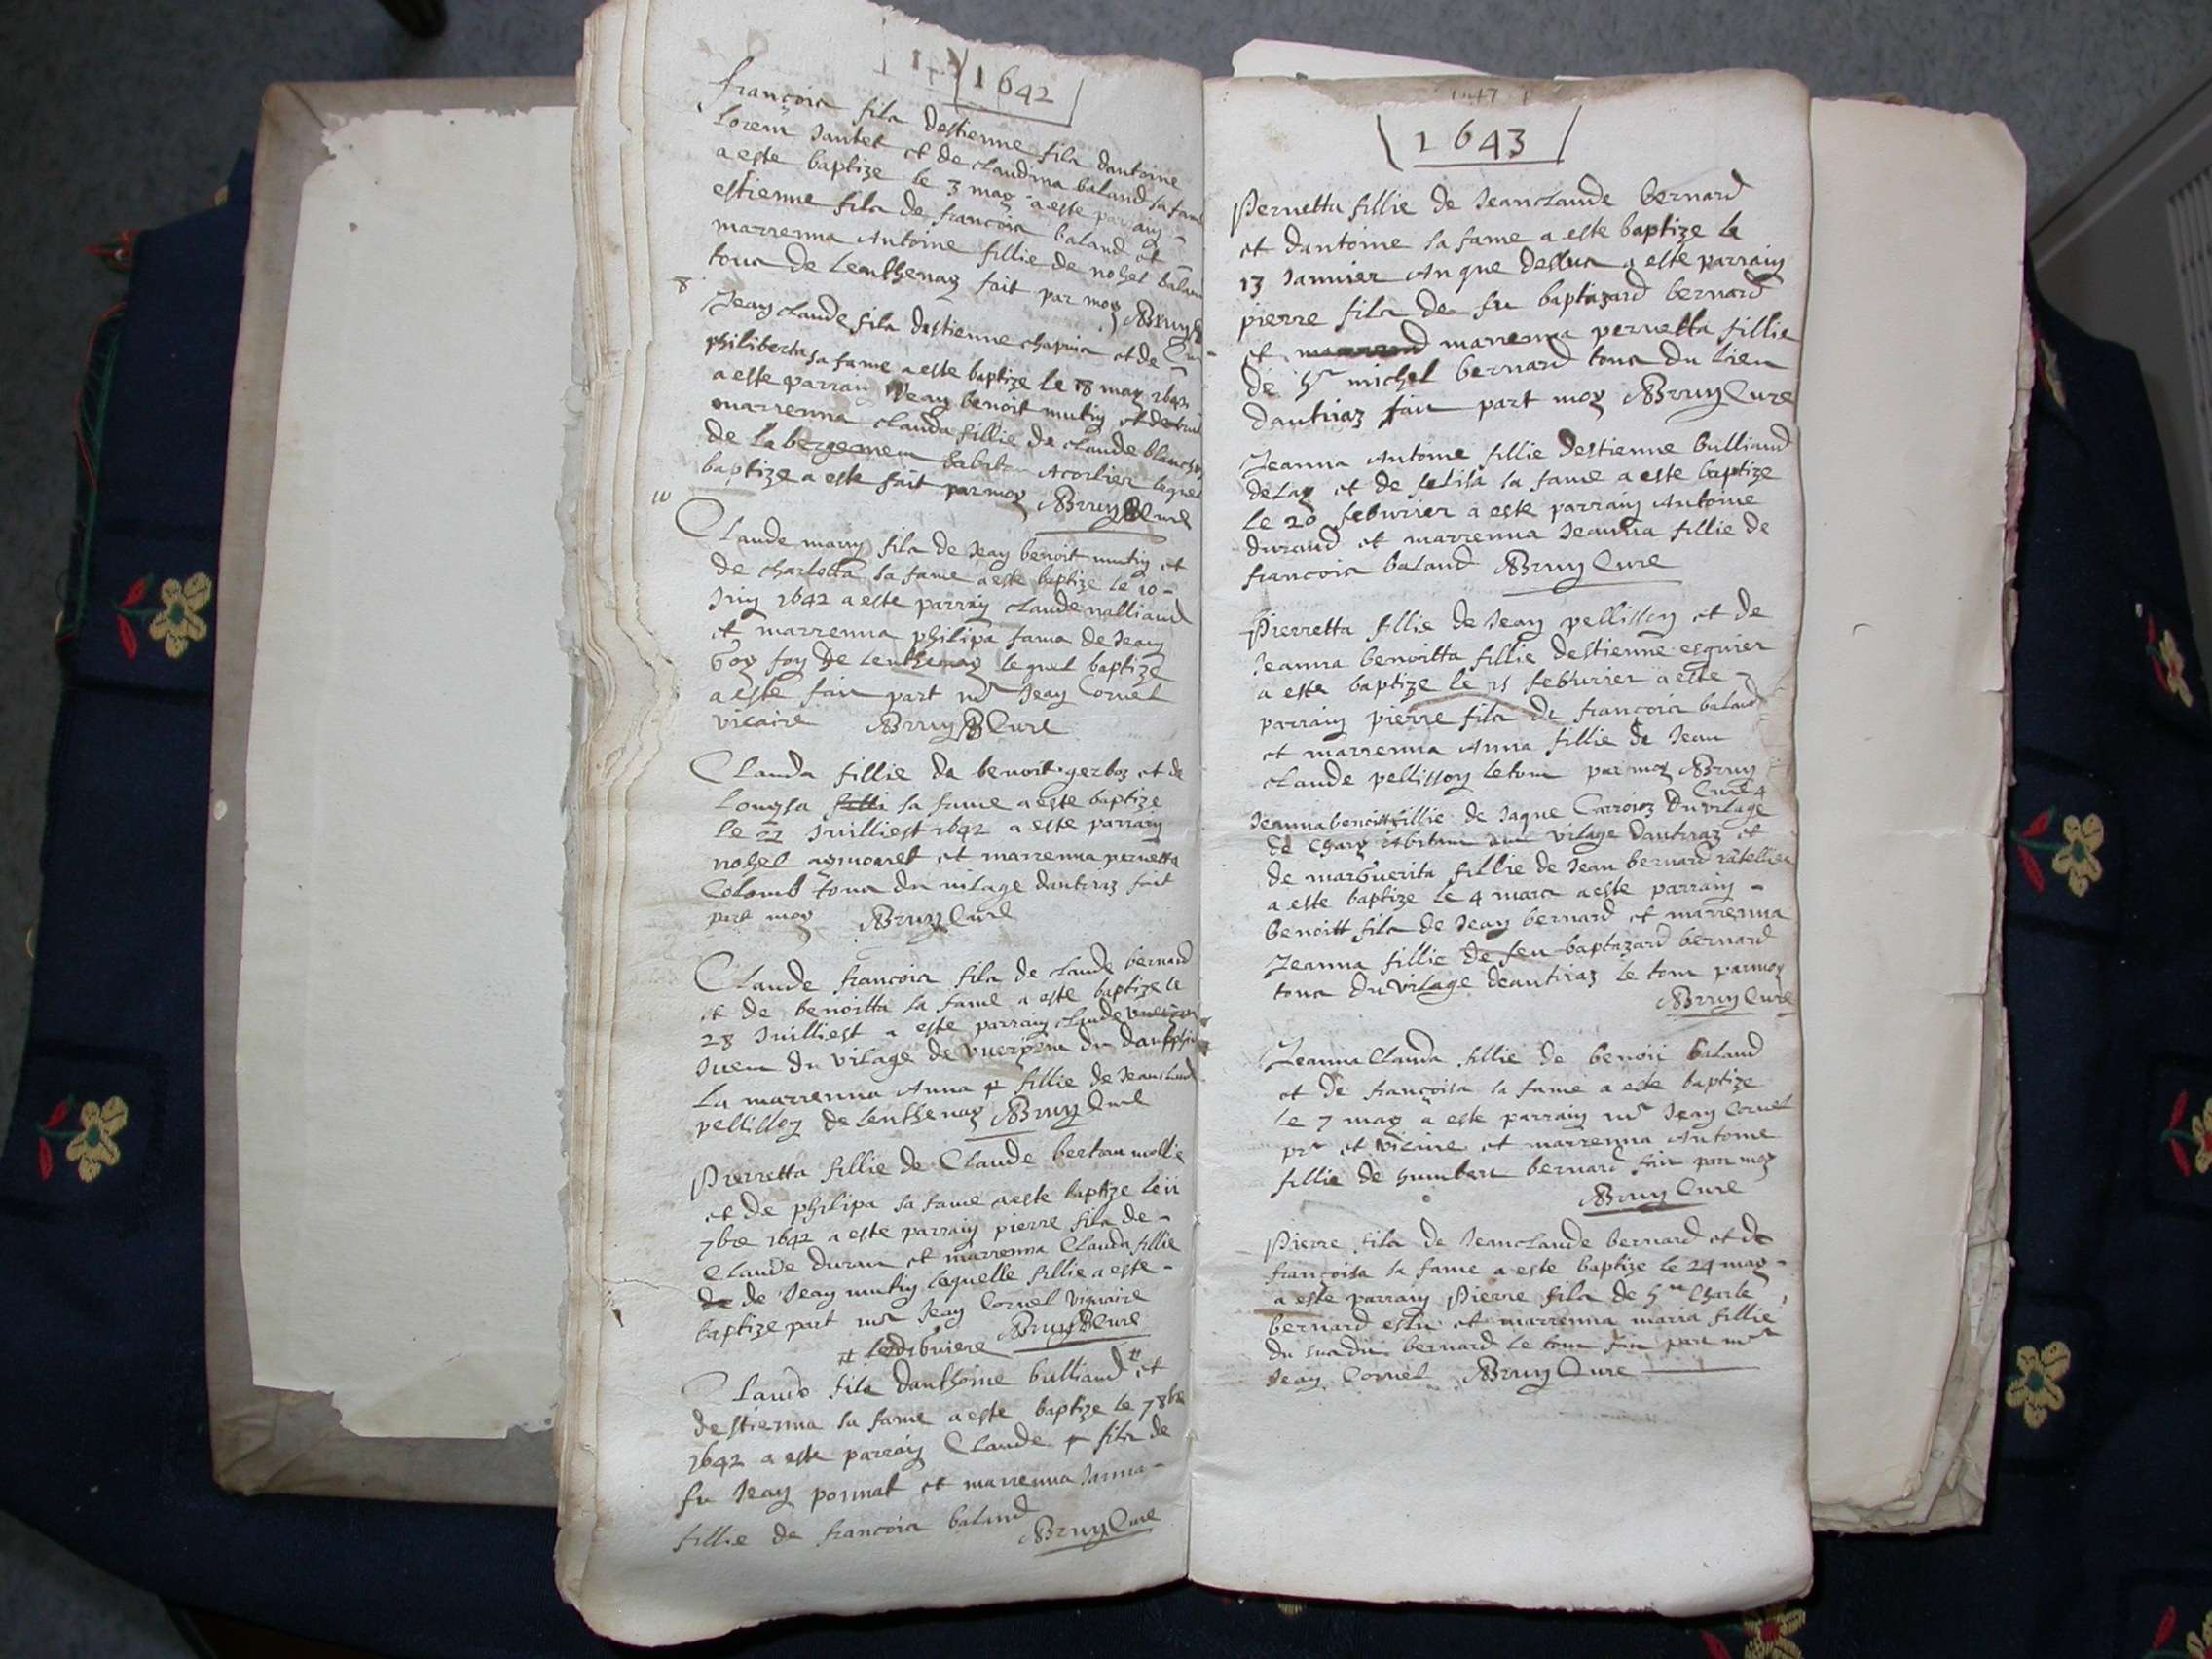 1642
françois fils destienne fils dantoine
Lorem Jantet et de claudina baland sa fame
a este baptize le 3 may a este parrain
estienne fils de françois baland et
marrenna Antoine fillie de nohel baland
tous de Lenthenay fait par moy Bruny
8 Jean claude fils destienne chapuis et de
philiberta sa fame a este baptize le 18 may 1642
a este parrain Jean benoit mutin et
marrenna clauda fillie de claude
de la bergemen habitan Acorlier lequel
baptize a este fait par moy Bruny Cure
10
Claude marin fils de Jean benoit mutin et
de charlotta sa fame a este baptize le 10
Juin 1642 a este parrain claude nalliand
et marrenna philipa fama de Jean
goy foy de Lenthenay lequel baptize
a este fait part mr Jean Cornel
vicaire Bruny Cure
Clauda fillie de benoit gerboz et de
Louysa filli sa fame a este baptize
le 22 Juilliest 1642 a este parrain
nohel aymoaret et marrenna pernetta
Colomb tous du vilage dantiraz fait
part moy Bruny Cure
Claude francois fils de claude bernard
et de benoitta sa fame a este baptize le
28 Juilliest a este parrain claude
du vilage de du dauphine
La marrenna Anna fillie de Jeanclaude
pellisson de lenthenay Bruny Cure
Pierretta fillie de Claude bertrau mollie
et de philipa sa fame a este baptize le ii
7bre 1642 a este parrain pierre fils de
Claude duran et marrenna Clauda fillie
de de Jean mutin laquelle fillie a este
baptize part mr Jean Cornel viquaire
Bruny Cure
Claude fils danthoine bulliand et
destienna sa fame a este baptize le 7 8bre
1642 a este parrain Claude fils de
fu Jean pormat et marrenna Janna
fillie de francois baland Bruny Cure
1643
Pernetta fillie de Jeanclaude bernard
et dantoine sa fame a este baptize le
13 Janvier An que dessus a este parrain
pierre fils de fu baptazard bernard
et marrenna pernetta fillie
de hr michel bernard tous du lieu
dantiraz fait part moy Bruny Cure
Jeanna Antoine fillie destienne bulliand
delay et de felisa sa fame a este baptize
le 20 febvrier a este parrain Antoine
durand et marrenna Jeanna fillie de
francois baland Bruny Cure
Pierretta fillie de Jean pellisson et de
Jeanna benoitta fillie destienne esquier
a este baptize le 25 febvrier a este
parrain pierre fils de francois baland
et marrenna Anna fillie de Jean
claude pellisson le tout par moy Bruny
Cure
Jeanna benoitt fillie de Jaque Carroiz du vilage
de habitant au vilage dantiraz et
de marguerita fillie de Jean bernard ratellier
a este baptize le 4 mars a este parrain
benoitt fils de Jean bernard et marrenna
Jeanna fillie de feu baptazard bernard
tous du vilage deantiraz le tout par moy
Bruny Cure
Jeanna Clauda fillie de benoit baland
et de françoisa sa fame a este baptize
le 7 may a este parrain mr Jean Cornel
pr et vicaire et marrenna Antoine
fillie de humbert bernard fait par moy
Bruny Cure
Pierre fils de Jeanclaude bernard et de
françoisa sa fame a este baptize le 24 may
a este parrain Pierre fils de Charle
bernard et marrenna maria fillie
du bernard le tout fait part mr
Jean Cornel Bruny Cure